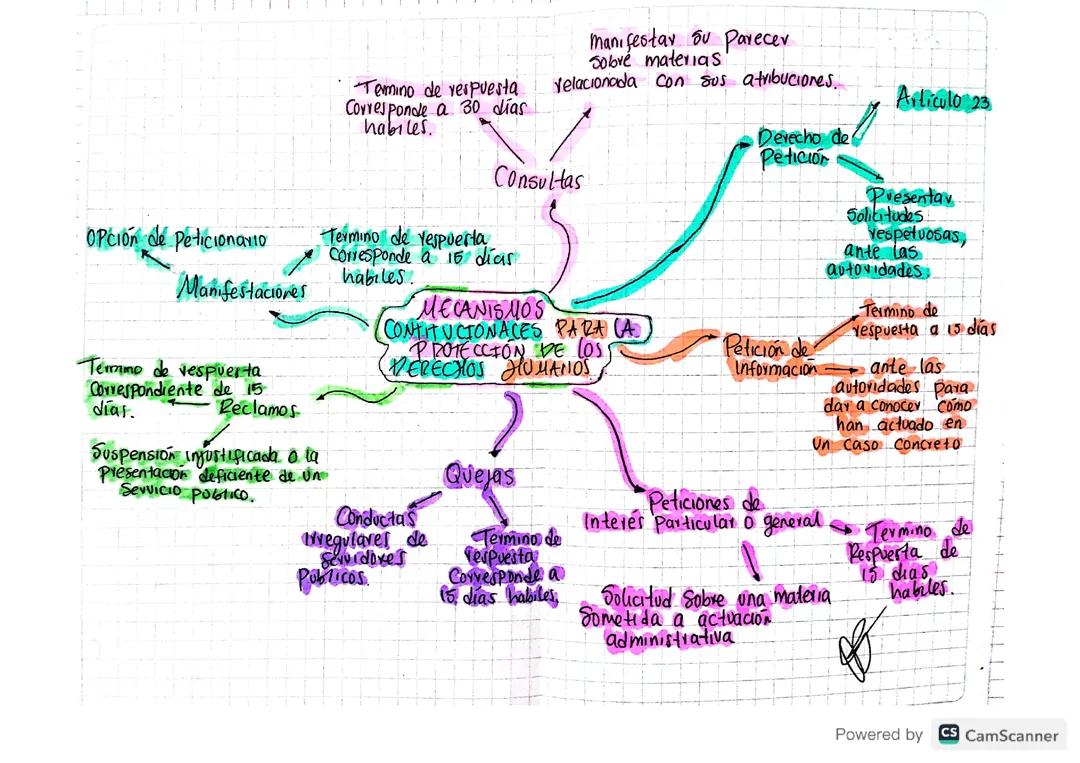 Manifestar su parecer
sobre materias
relacionada con sus atribuciones.
Termino de respuesta
Corresponde a 30 días
habiles.
Consultas
Artículo 23
Derecho de
Petición
Presentar
Solicitudes
respetuosas,
ante las
autoridades.
Opción de Peticionario
Termino de respuesta
Corresponde a 15 días
habiles.
Manifestaciones
MECANISMOS
CONTITUCIONALES PARA LA
PROTECCIÓN DE LOS
DERECHOS HUMANOS
Termino de
respuesta a 15 días
Petición de
Información
ante las
autoridades para
dar a conocer cómo
han actuado en
un caso concreto
Termino de respuerta
Correspondiente de 15
días.
Reclamos
Suspensión injustificada o la
Presentación deficiente de un
Servicio publico.
Quejas
Conductas
Irregulares de
Servidores
Públicos.
Termino de
respuesta
Corresponde a
15 días habiles.
Peticiones de
Interés Particular o general
Termino de
Respuesta de
15 dias
habiles.
Solicitud sobre una materia
Sometida a actuación
administrativa
Powered by CS CamScanner